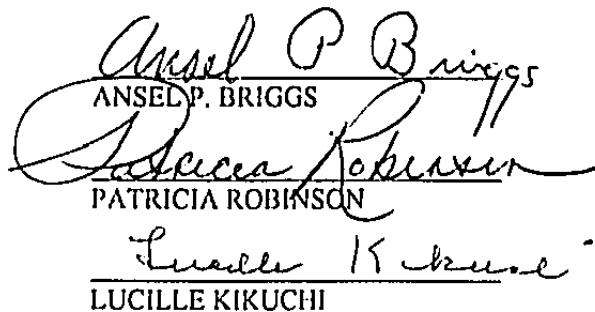 Ansel P Briggs
ANSEL P. BRIGGS
Patricia Robinson
PATRICIA ROBINSON
Lucille Kikuchi
LUCILLE KIKUCHI